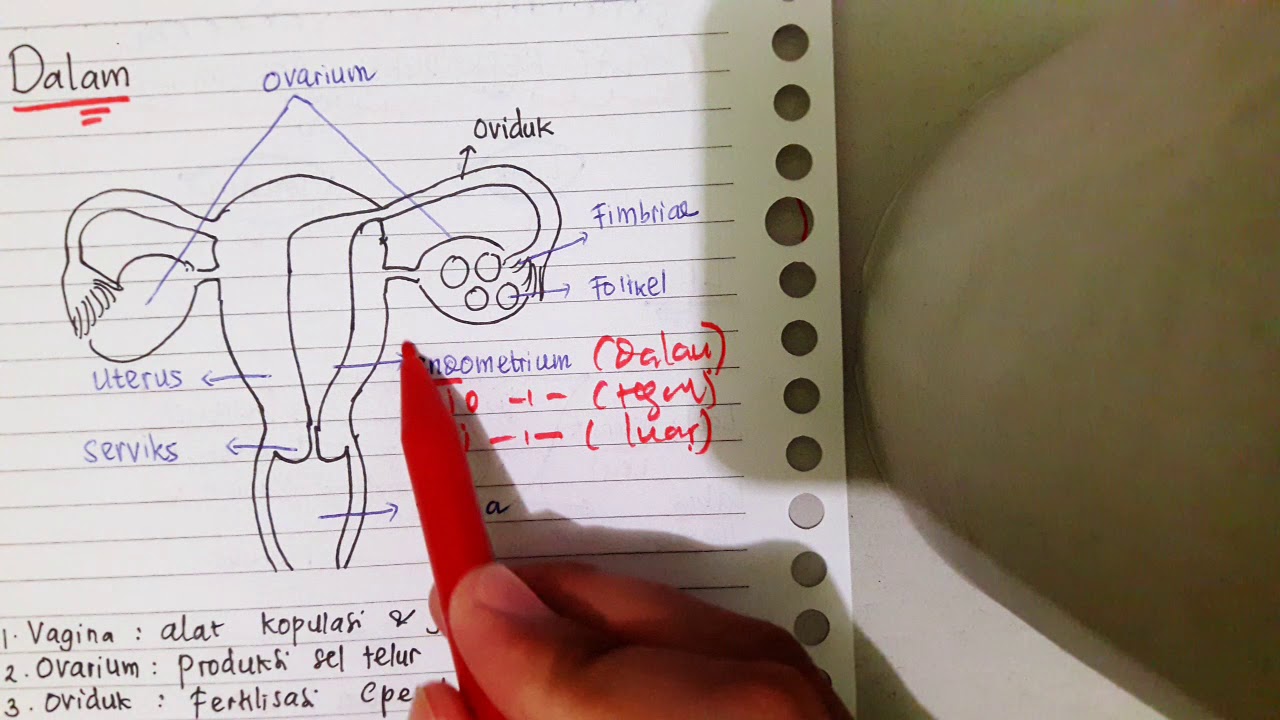 Dalam
Ovarium
Oviduk
Fimbriae
Folikel
Endometrium (Dalam)
uterus
io -1- (tegm)
serviks
i -1- (luar)
a
1. Vagina : alat kopulasi &
2. Ovarium : produksi sel telur
3. Oviduk : Fertilisasi